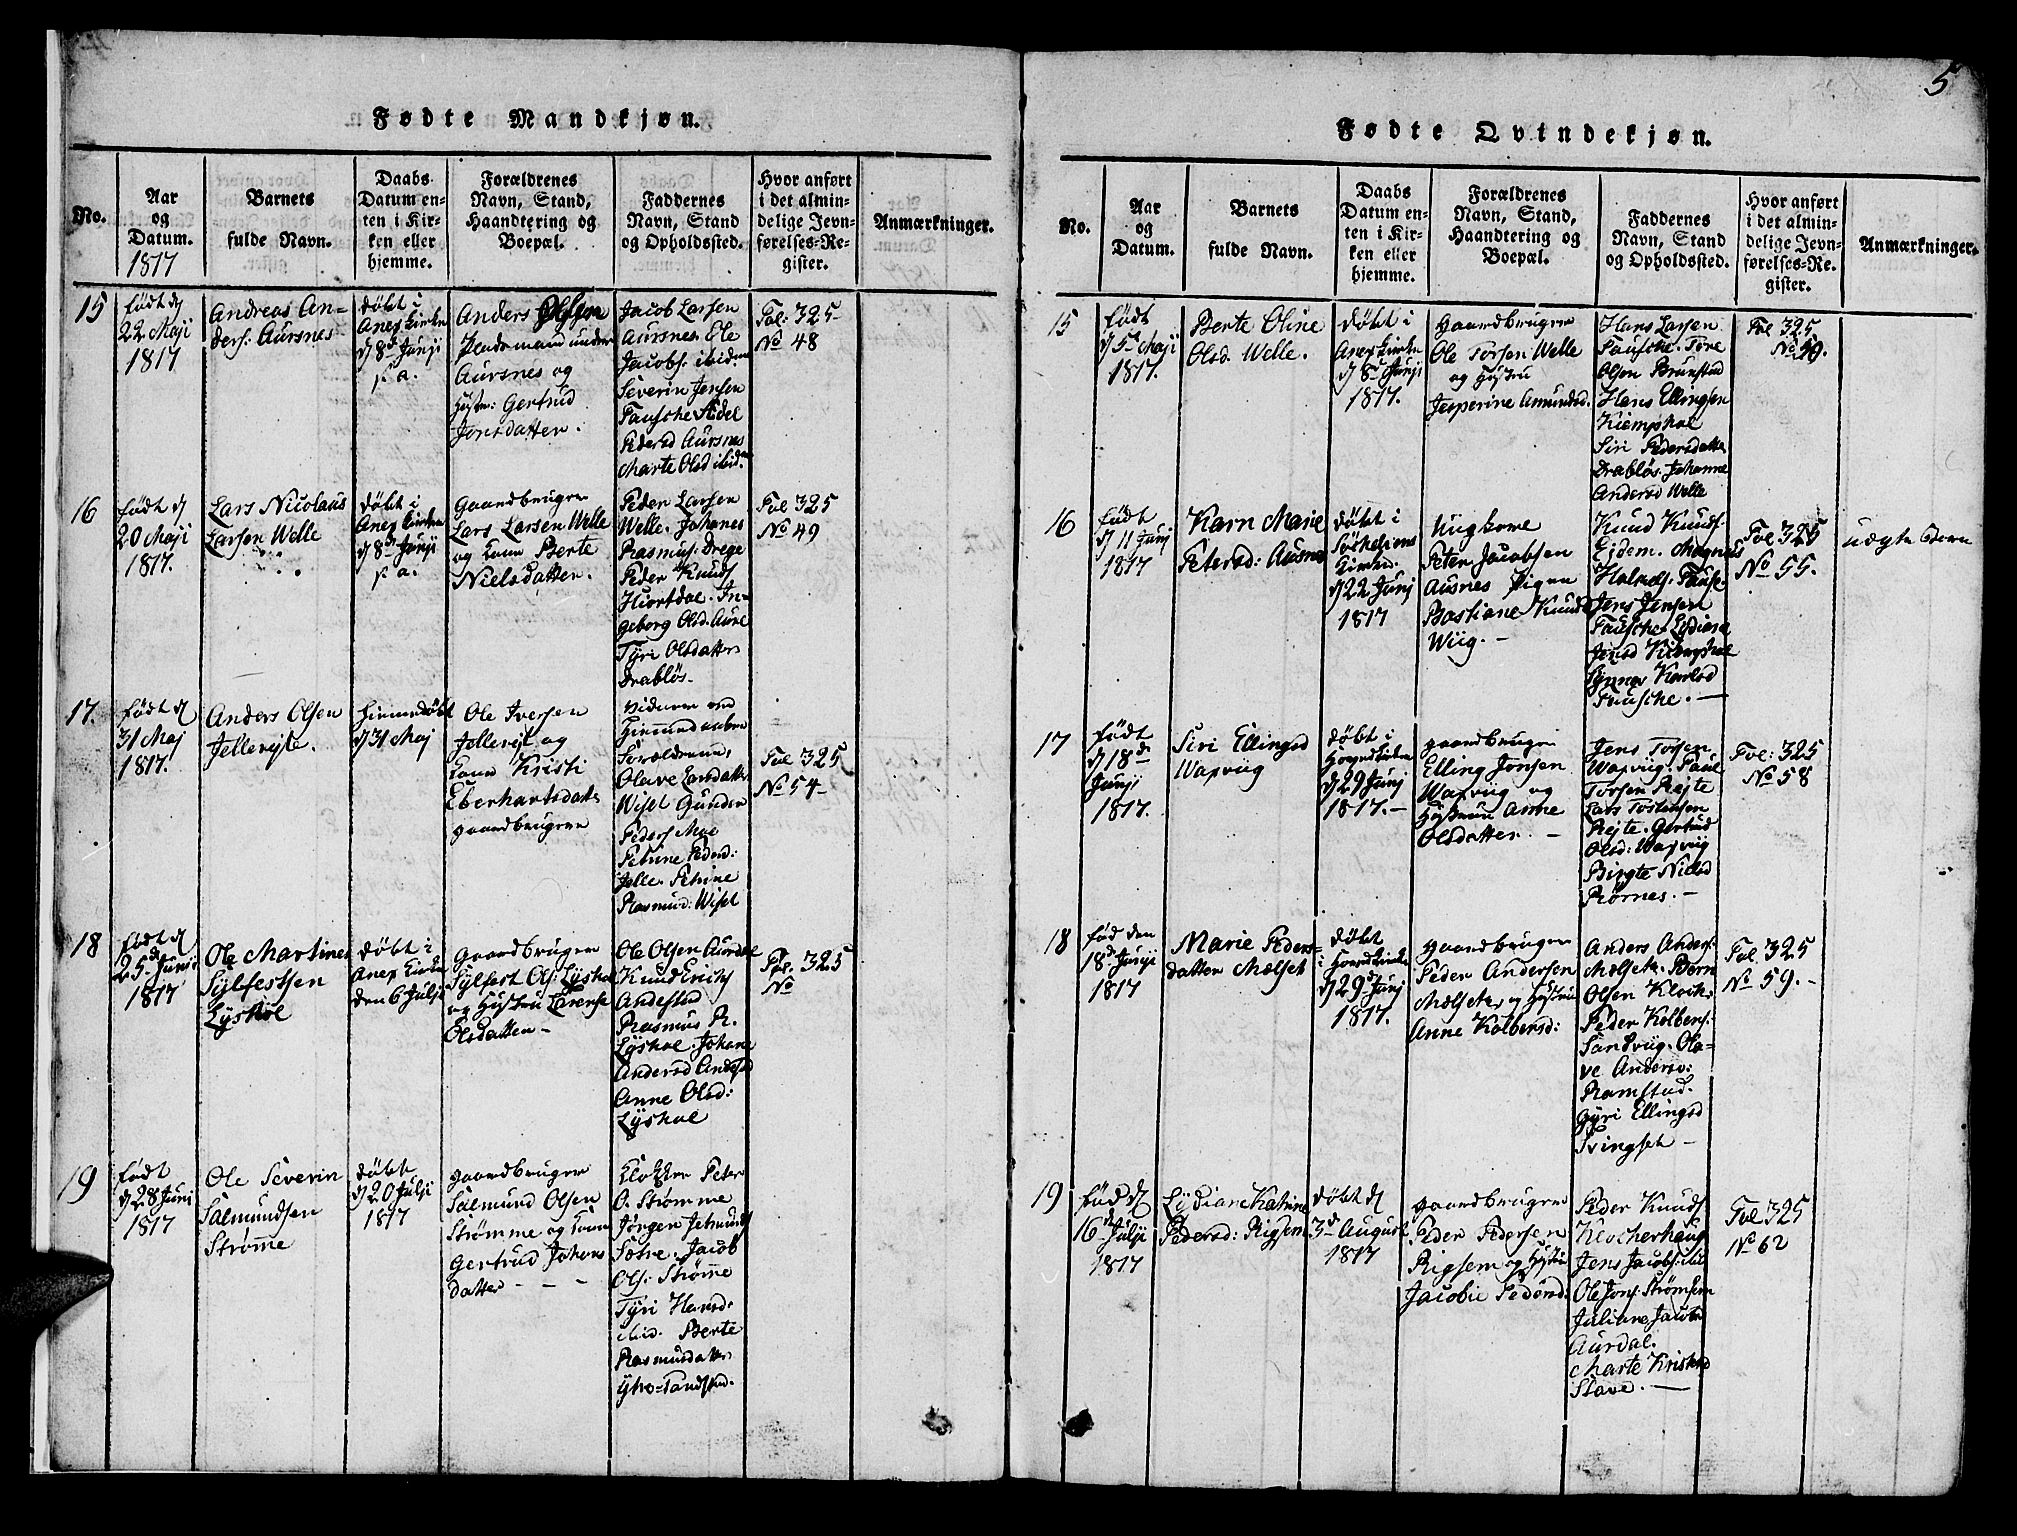 5
Fødte Mandkjøn.
No.
Aar
og
Datum.
1817
Barnets
fulde Navn.
Daabs
Datum en-
ten i Kir-
ken eller
hjemme.
Forældrenes
Navn, Stand,
Haandtering og
Boepæl.
Faddernes
Navn, Stand
og Opholdssted.
Hvor anført
i det almin-
delige Jevn-
førelses-Re-
gister.
Anmærkninger.
15
født d
22 Maji
1817
Andreas An-
ders: Aursnes
døbt i
Anex Kirken
d 8de Junji
s. a.
Anders Olsen
under
Aursnes og
Hustr: Gertrud
Jonsdatter.
Jacob Larsen
Aursnes. Ole
Jacobs: ibidem
Severin Jensen
Fausche. Sidel
Pedersd Aursnes
Marte Olsd ibidm
Fol: 325
No 48
16
født d
20 Maji
1817.
Lars Nicolaus
Larsen Welle
døbt i
Anex Kirken
d 8de Junji
s. a.
Gaardbruger
Lars Larsen Welle
og Kone Berte
Nielsdatter.
Peder Larsen
Welle. Johanes
Rasmus: Drege
Peder Knuds
Hiortdal. In-
geborg Olsd. Aure
Tyri Olsdatter
Drabløs.
Fol 325
No 49
17.
født d
31 Maj
1817.
Anders Olsen
Jellevigte.
Hiemmedøbt
d 31 Maj
Ole Iversen
Jellevigt og
Kone Kristi
Eberhartsdatter
gaardbrugere
Vidnerne ved
Hiemmedaaben
Forældrene,
Olave Larsdatter
Wiset Gunder
Peders Moe
Petrine Peders:
Jelle. Petrine
Rasmusd: Wiset
Fol 325
No 54
18
født d
25de Junji
1817
Ole Martines
Sylfestsen
Lyshol
døbt i
Anex Kirken
den 6 Julji
gaardbruger
Sylfest Ols: Lyshol
og Hustru Larense
Olsdatter
Ole Olsen Aurdal
Knud Erichs
Andestad
Rasmus R.
Lyshol. Johane
Andersd Andestad
Anne Olsd:
Lyshol
Fol. 325
No
19
født
d 28 Junj
1817
Ole Severin
Salmundsen
Strømme
døbt
d 20 Julji
1817
gaardbruger
Salmund Olsen
Strømme og Kone
Gertrud Johans
datter
Klokker Peter
O. Strømme
Jørgen Jetmunds
Sætre. Jacob
Ols: Strømme
Tyri Hansd.
ibid. Berte
Rasmusdatter
Fødte Qvindekjøn.
No.
Aar
og
Datum.
Barnets
fulde Navn.
Daabs
Datum en-
ten i Kir-
ken eller
hjemme.
Forældrenes
Navn, Stand,
Haandtering og
Boepæl.
Faddernes
Navn, Stand
og Opholdssted.
Hvor anført
i det almin-
delige Jevn-
førelses-Re-
gister.
Anmærkninger.
15
født
d 5te Maji
1817.
Berte Oline
Olsd. Welle.
døbt i
Anex Kirken
d 8de Junji
1817.
gaardbruger
Ole Torsen Welle
og Hustru
Jesperine Amundsd.
Hans Larsen
Fausche. Tore
Olsen Brunstad
Hans Ellingsen
Kiemphol
Siri Pedersdatter
Drabløs. Johanne
Andersd Welle
Fol 325
No 50.
16
født
d 11 Junj
1817
Karn Marie
Petersd: Aursnes
døbt i
Søkelvens
Kirken
d 22 Junj
1817
Ungkone
Peter Jacobsen
Ausnes Pigen
Bastiane Knuds
Wiig.
Knud Knuds.
Eidem. Magnus
Halvors: Fausc.
Jens Jensen
Fausche. Lydiane
Jonsd Kiempshol
Synnev Karlsd
Fausche.
Fol 325
No 55.
uægte Barn
17
født
d 18de
Junji
1817.
Siri Ellingsd
Wapviig
døbt i
Hovedkirken
d 29 Junj
1817.
gaardbruger
Elling Jonsen
Wapviig og
Hustrue Anne
Olsdatter.
Jens Torsen
Wapviig. Paul
Torsen Reite
Lars Tostensen
Reite. Gertrud
Olsd: Wapviig
Birgte Nielsd
Rørnes.
Fol: 325
No 58
18
fød den
18de Junji
1817
Marie Peders-
datter Molset
døbt i
Hovedkirken
d 29de Junj
1817.
gaardbruger
Peder Andersen
Molseter og Hustru
Anne Kolbensd:
Anders Anders:
Molseter. Bern
Olsen Klock.
Peder Kolbens:
Sandviig. Ola-
ve Andersd:
Ramstad.
Gyri Ellingsd
Tvingset
Fol 325
No 59.
19
fød d
16de Julji
1817
Lydiane Katrine
Pedersd: Rigsem
døbt d
3de August
1817
gaardbruger
Peder Pedersen
Rigsem og Hustru
Jacobie Pedersd.
Peder Knuds
Klocherhaug
Jens Jacobs:
Ole Jons. Strømsem
Juliane Jacobs
Aurdal.
Marte Kristensd
Stave.
Fol 325
No 62